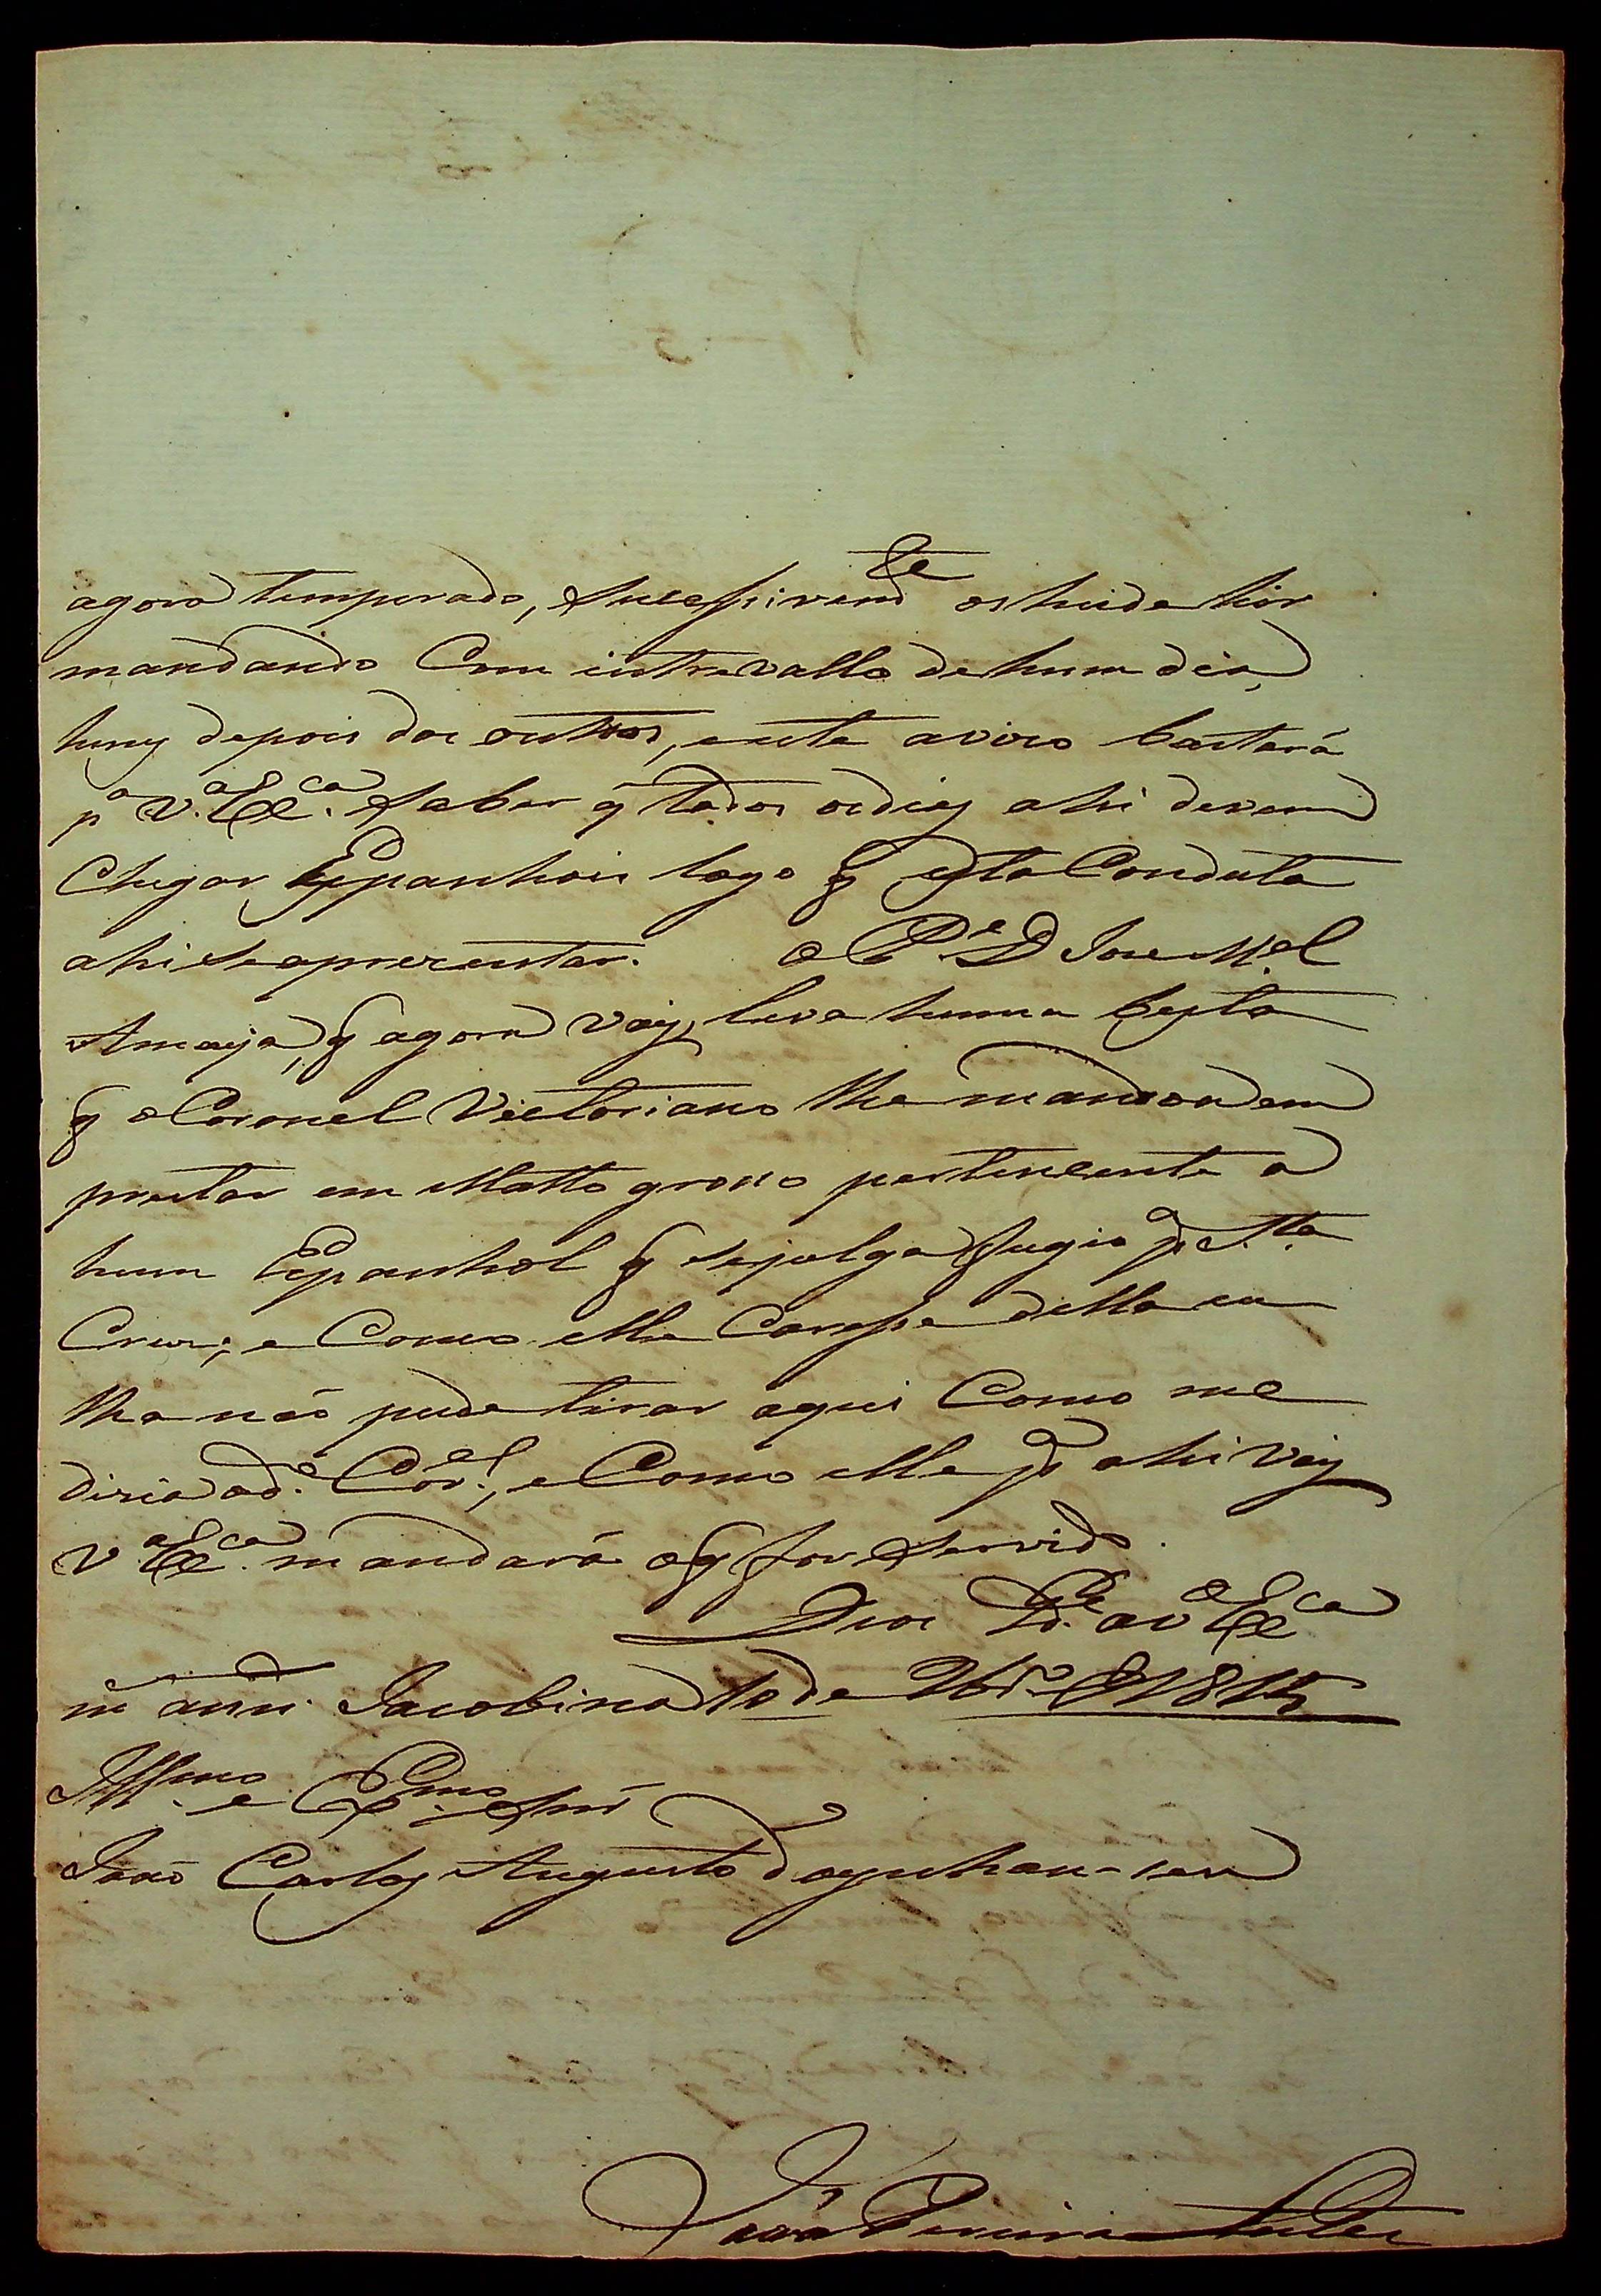 agora temperado, Sucessivam.te os heide hir
mandando Com intrevallo de hum dia,
huns depois dos outtros, este aviso bastará
p.a V.a Ex.ca Saber q todos os dias ahi devem
Chegar Espanhois logo q esta Conduta
ahi se aprezentar. o P.e D Joze M.el
Amaya, q agora vay, leva huma besta
q o Coronel Victoriano lhe mandou em
prestar em Matto groso pertencente a
hum Espanhol q se julga fugio p.a S.ta
Cruz; e Como elle Caresse della eu
lha não pude tirar aqui Como me
dizia o d.o Cor.el, e Como elle p.a ahi vay
V.a Ex.ca mandará o q for Servido.
Deos G.de a V.a Ex.ca
m.s ann.s Jacobina 10 de 9br.o de 1815
Ill.mo e Ex.mo Snr
João Carlos Augusto d'oeynhau-sen
João Pereira Leite